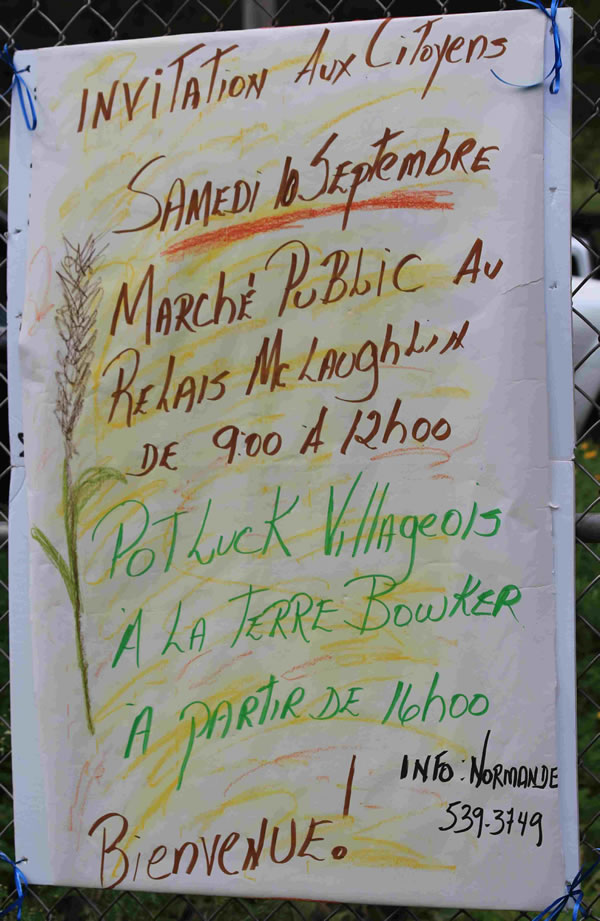 INVITATION AUX CITOYENS
SAMEDI 10 SEPTEMBRE
MARCHÉ PUBLIC AU
RELAIS McLAUGHLIN
DE 9:00 À 12h00
POTLUCK VILLAGEOIS
À LA TERRE BOWKER
À PARTIR DE 16h00
INFO: NORMANDE
539-3749
BIENVENUE!